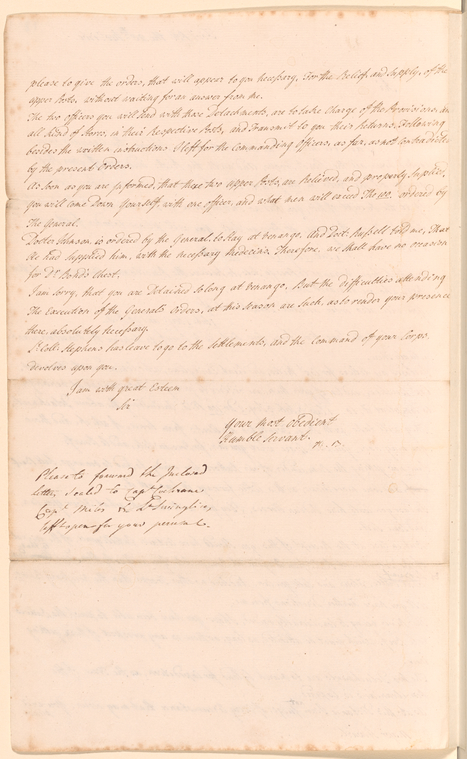 please to give the orders, that will appear to you necessary, For the Relief, and Supply, of the
upper posts, without waiting for an answer from me.
The two officers you will send with those Detachments, are to take Charge of the Provisions, and
all Kind of Stores, in their Respective Posts, and transmit to you their Returns, Following
besides the written instructions I left for the Commanding Officers, as far, as not Contradicted,
by the present Orders.
As soon as you are informed, that these two upper posts, are Relieved, and properly Supplied,
you will come Down yourself, with one officer, and what men will exceed The 100. ordered by
The General.
Doctor Johnson is ordered by the General, to Stay at Venango, And Doct. Russell told me, That
He had supplied him, with the necessary Medecins. Therefore, we shall have no occasion
for Dr. Bond's Chest.
I am Sorry, that you are Detained So long at Venango, But the difficulties attending
The Execution of the General's Orders, at this Season are Such, as to render your presence
there, absolutely necessary.
Lt. Coll. Stephens has leave to go to the Settlements, and the Command of your Corps
devolves upon you.
I am with great Esteem
Sir
Your most obedient
Humble Servant.
Please to forward the Inclosed
letters, Sealed to Capt. Cochrane
Capt. Miles &
left open for your perusal.